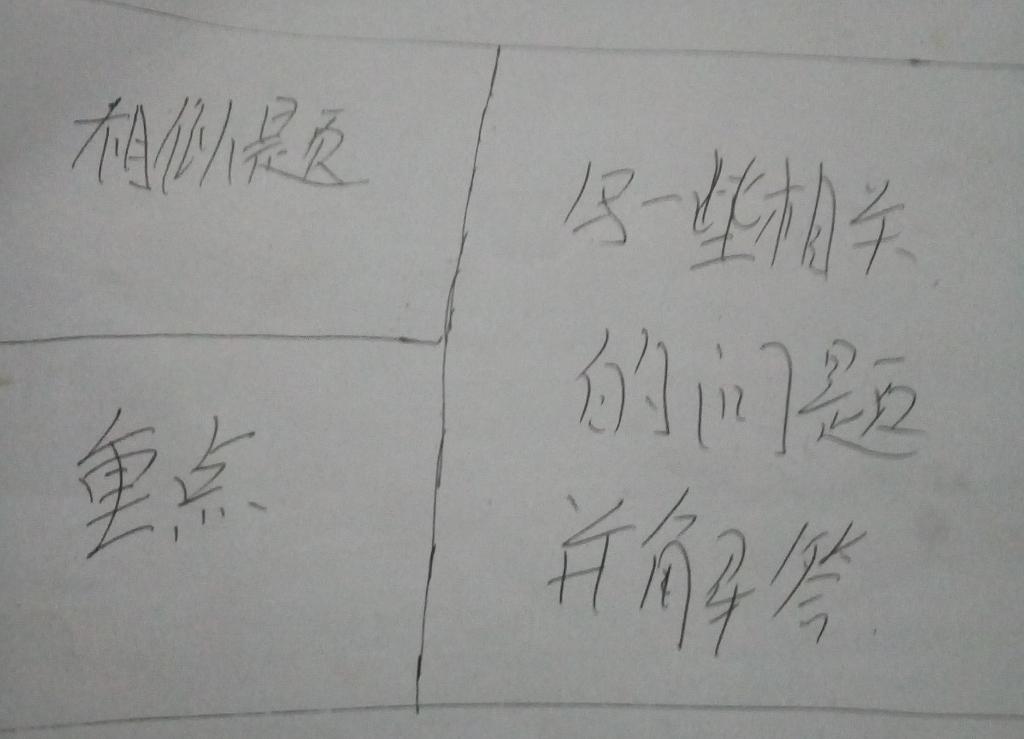 相似题
重点
另一些相关
的问题
并解答